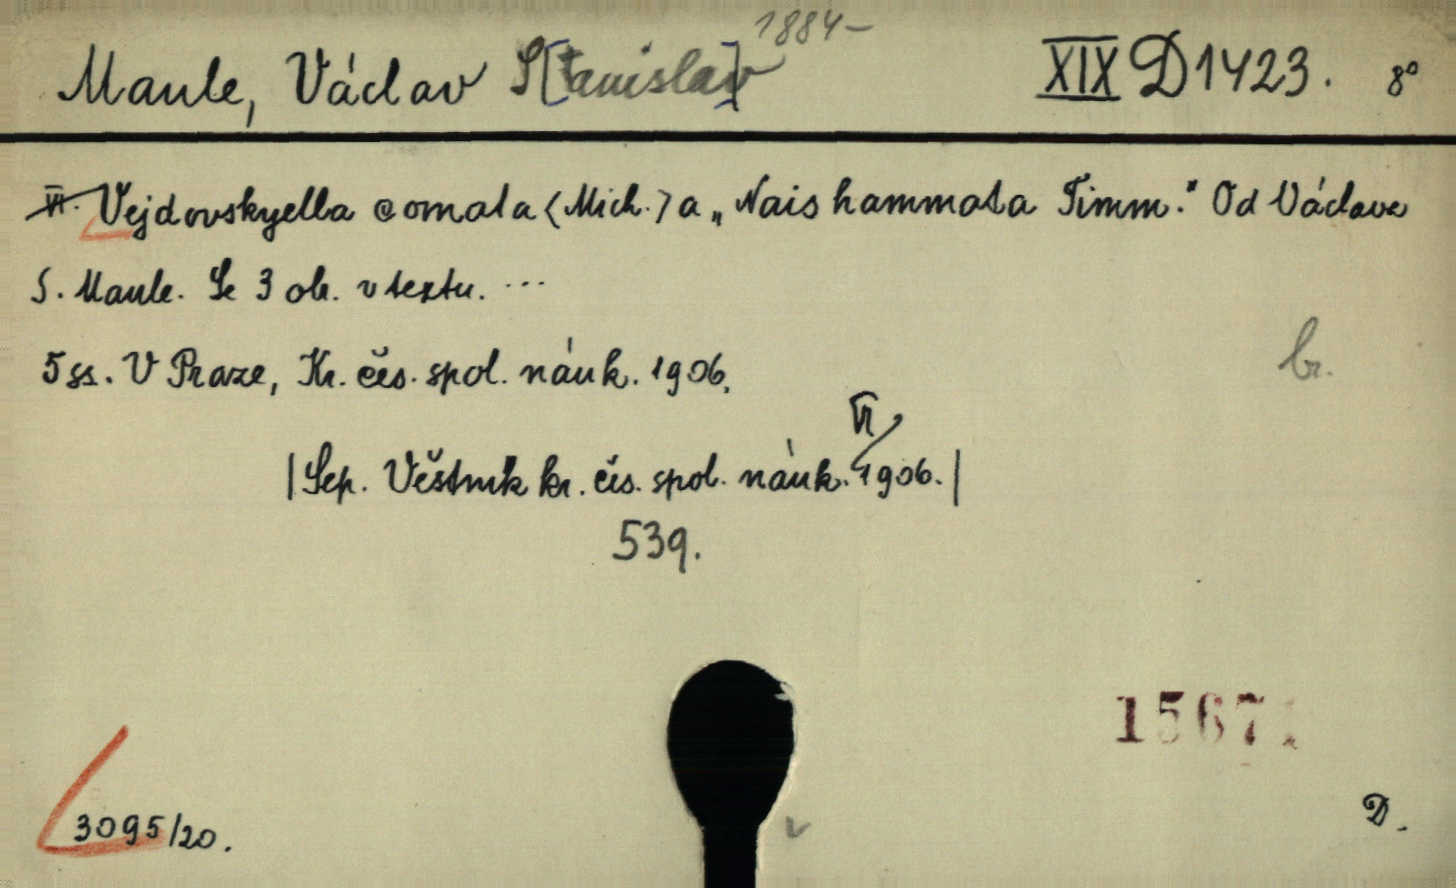 Maule, Václav S[tanislav] 1884- XIX D 1423. 8°
VI. Vejdovskyella comata (Mich.) a „Nais hammata Timm." Od Václava
S. Maule. Se 3 obr. v textu. ...
5 ss. V Praze, Kr. čes. spol. náuk. 1906.
br.
VI
|Sep. Věstník kr. čes. spol. náuk. 1906.|
539.
1567
3095/20.
D.